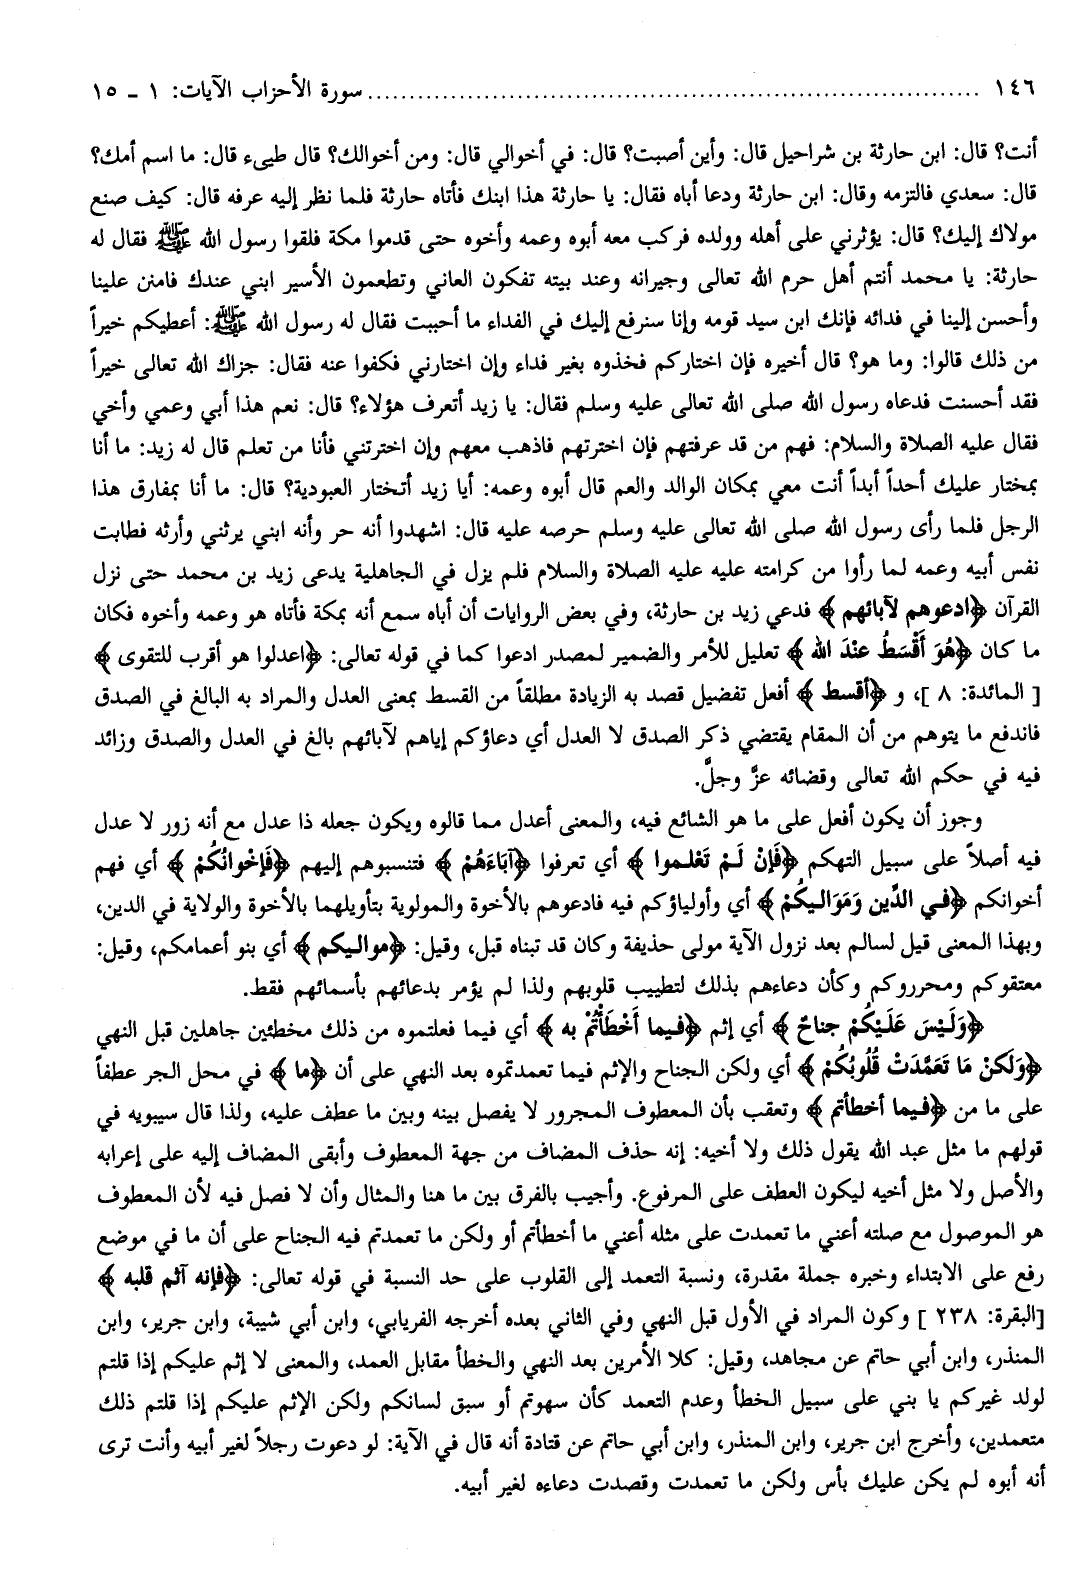 ١٤٦ ............................................................ سورة الأحزاب الآيات: ١ ـ ١٥
أنت؟ قال: ابن حارثة بن شراحيل قال: وأين أصبت؟ قال: في أخوالي قال: ومن أخوالك؟ قال طيىء قال: ما اسم أمك؟
قال: سعدي فالتزمه وقال: ابن حارثة ودعا أباه فقال: يا حارثة هذا ابنك فأتاه حارثة فلما نظر إليه عرفه قال: كيف صنع
مولاك إليك؟ قال: يؤثرني على أهله وولده فركب معه أبوه وعمه وأخوه حتى قدموا مكة فلقوا رسول الله ﷺ فقال له
حارثة: يا محمد أنتم أهل حرم الله تعالى وجيرانه وعند بيته تفكون العاني وتطعمون الأسير ابني عندك فامنن علينا
وأحسن إلينا في فدائه فإنك ابن سيد قومه وإنا سنرفع إليك في الفداء ما أحببت فقال له رسول الله ﷺ: أعطيكم خيراً
من ذلك قالوا: وما هو؟ قال أخيره فإن اختاركم فخذوه بغير فداء وإن اختارني فكفوا عنه فقال: جزاك الله تعالى خيراً
فقد أحسنت فدعاه رسول الله صلى الله تعالى عليه وسلم فقال: يا زيد أتعرف هؤلاء؟ قال: نعم هذا أبي وعمي وأخي
فقال عليه الصلاة والسلام: فهم من قد عرفتهم فإن اخترتهم فاذهب معهم وإن اخترتني فأنا من تعلم قال له زيد: ما أنا
بمختار عليك أحداً أبداً أنت معي بمكان الوالد والعم قال أبوه وعمه: أيا زيد أتختار العبودية؟ قال: ما أنا بمفارق هذا
الرجل فلما رأى رسول الله صلى الله تعالى عليه وسلم حرصه عليه قال: اشهدوا أنه حر وأنه ابني يرثني وأرثه فطابت
نفس أبيه وعمه لما رأوا من كرامته عليه عليه الصلاة والسلام فلم يزل في الجاهلية يدعى زيد بن محمد حتى نزل
القرآن ﴿ادعوهم لآبائهم﴾ فدعي زيد بن حارثة، وفي بعض الروايات أن أباه سمع أنه بمكة فأتاه هو وعمه وأخوه فكان
ما كان ﴿هُوَ أَقْسَطُ عنْدَ الله﴾ تعليل للأمر والضمير لمصدر ادعوا كما في قوله تعالى: ﴿اعدلوا هو أقرب للتقوى﴾
[ المائدة: ٨ ]، و ﴿أقسط﴾ أفعل تفضيل قصد به الزيادة مطلقاً من القسط بمعنى العدل والمراد به البالغ في الصدق
فاندفع ما يتوهم من أن المقام يقتضي ذكر الصدق لا العدل أي دعاؤكم إياهم لآبائهم بالغ في العدل والصدق وزائد
فيه في حكم الله تعالى وقضائه عزَّ وجلَّ.
وجوز أن يكون أفعل على ما هو الشائع فيه، والمعنى أعدل مما قالوه ويكون جعله ذا عدل مع أنه زور لا عدل
فيه أصلاً على سبيل التهكم ﴿فَإنْ لَمْ تَعْلَموا﴾ أي تعرفوا ﴿آبَاءَهُمْ﴾ فتنسبوهم إليهم ﴿فَإخْوانُكُمْ﴾ أي فهم
أخوانكم ﴿في الدِّين وَمَوَاليكُمْ﴾ أي وأولياؤكم فيه فادعوهم بالأخوة والمولوية بتأويلهما بالأخوة والولاية في الدين،
وبهذا المعنى قيل لسالم بعد نزول الآية مولى حذيفة وكان قد تبناه قبل، وقيل: ﴿مواليكم﴾ أي بنو أعمامكم، وقيل:
معتقوكم ومحرروكم وكأن دعاءهم بذلك لتطييب قلوبهم ولذا لم يؤمر بدعائهم بأسمائهم فقط.
﴿وَلَيْسَ عَلَيْكُمْ جناحٌ﴾ أي إثم ﴿فيما أَخْطَأْتُمْ به﴾ أي فيما فعلتموه من ذلك مخطئين جاهلين قبل النهي
﴿وَلَكنْ مَا تَعَمَّدَتْ قُلُوبُكُمْ﴾ أي ولكن الجناح والإثم فيما تعمدتموه بعد النهي على أن ﴿ما﴾ في محل الجر عطفاً
على ما من ﴿فيما أخطأتم﴾ وتعقب بأن المعطوف المجرور لا يفصل بينه وبين ما عطف عليه، ولذا قال سيبويه في
قولهم ما مثل عبد الله يقول ذلك ولا أخيه: إنه حذف المضاف من جهة المعطوف وأبقى المضاف إليه على إعرابه
والأصل ولا مثل أخيه ليكون العطف على المرفوع. وأجيب بالفرق بين ما هنا والمثال وأن لا فصل فيه لأن المعطوف
هو الموصول مع صلته أعني ما تعمدت على مثله أعني ما أخطأتم أو ولكن ما تعمدتم فيه الجناح على أن ما في موضع
رفع على الابتداء وخبره جملة مقدرة، ونسبة التعمد إلى القلوب على حد النسبة في قوله تعالى: ﴿فإنه آثم قلبه﴾
[البقرة: ٢٣٨ ] وكون المراد في الأول قبل النهي وفي الثاني بعده أخرجه الفريابي، وابن أبي شيبة، وابن جرير، وابن
المنذر، وابن أبي حاتم عن مجاهد، وقيل: كلا الأمرين بعد النهي والخطأ مقابل العمد، والمعنى لا إثم عليكم إذا قلتم
لولد غيركم يا بني على سبيل الخطأ وعدم التعمد كأن سهوتم أو سبق لسانكم ولكن الإثم عليكم إذا قلتم ذلك
متعمدين، وأخرج ابن جرير، وابن المنذر، وابن أبي حاتم عن قتادة أنه قال في الآية: لو دعوت رجلاً لغير أبيه وأنت ترى
أنه أبوه لم يكن عليك بأس ولكن ما تعمدت وقصدت دعاءه لغير أبيه.